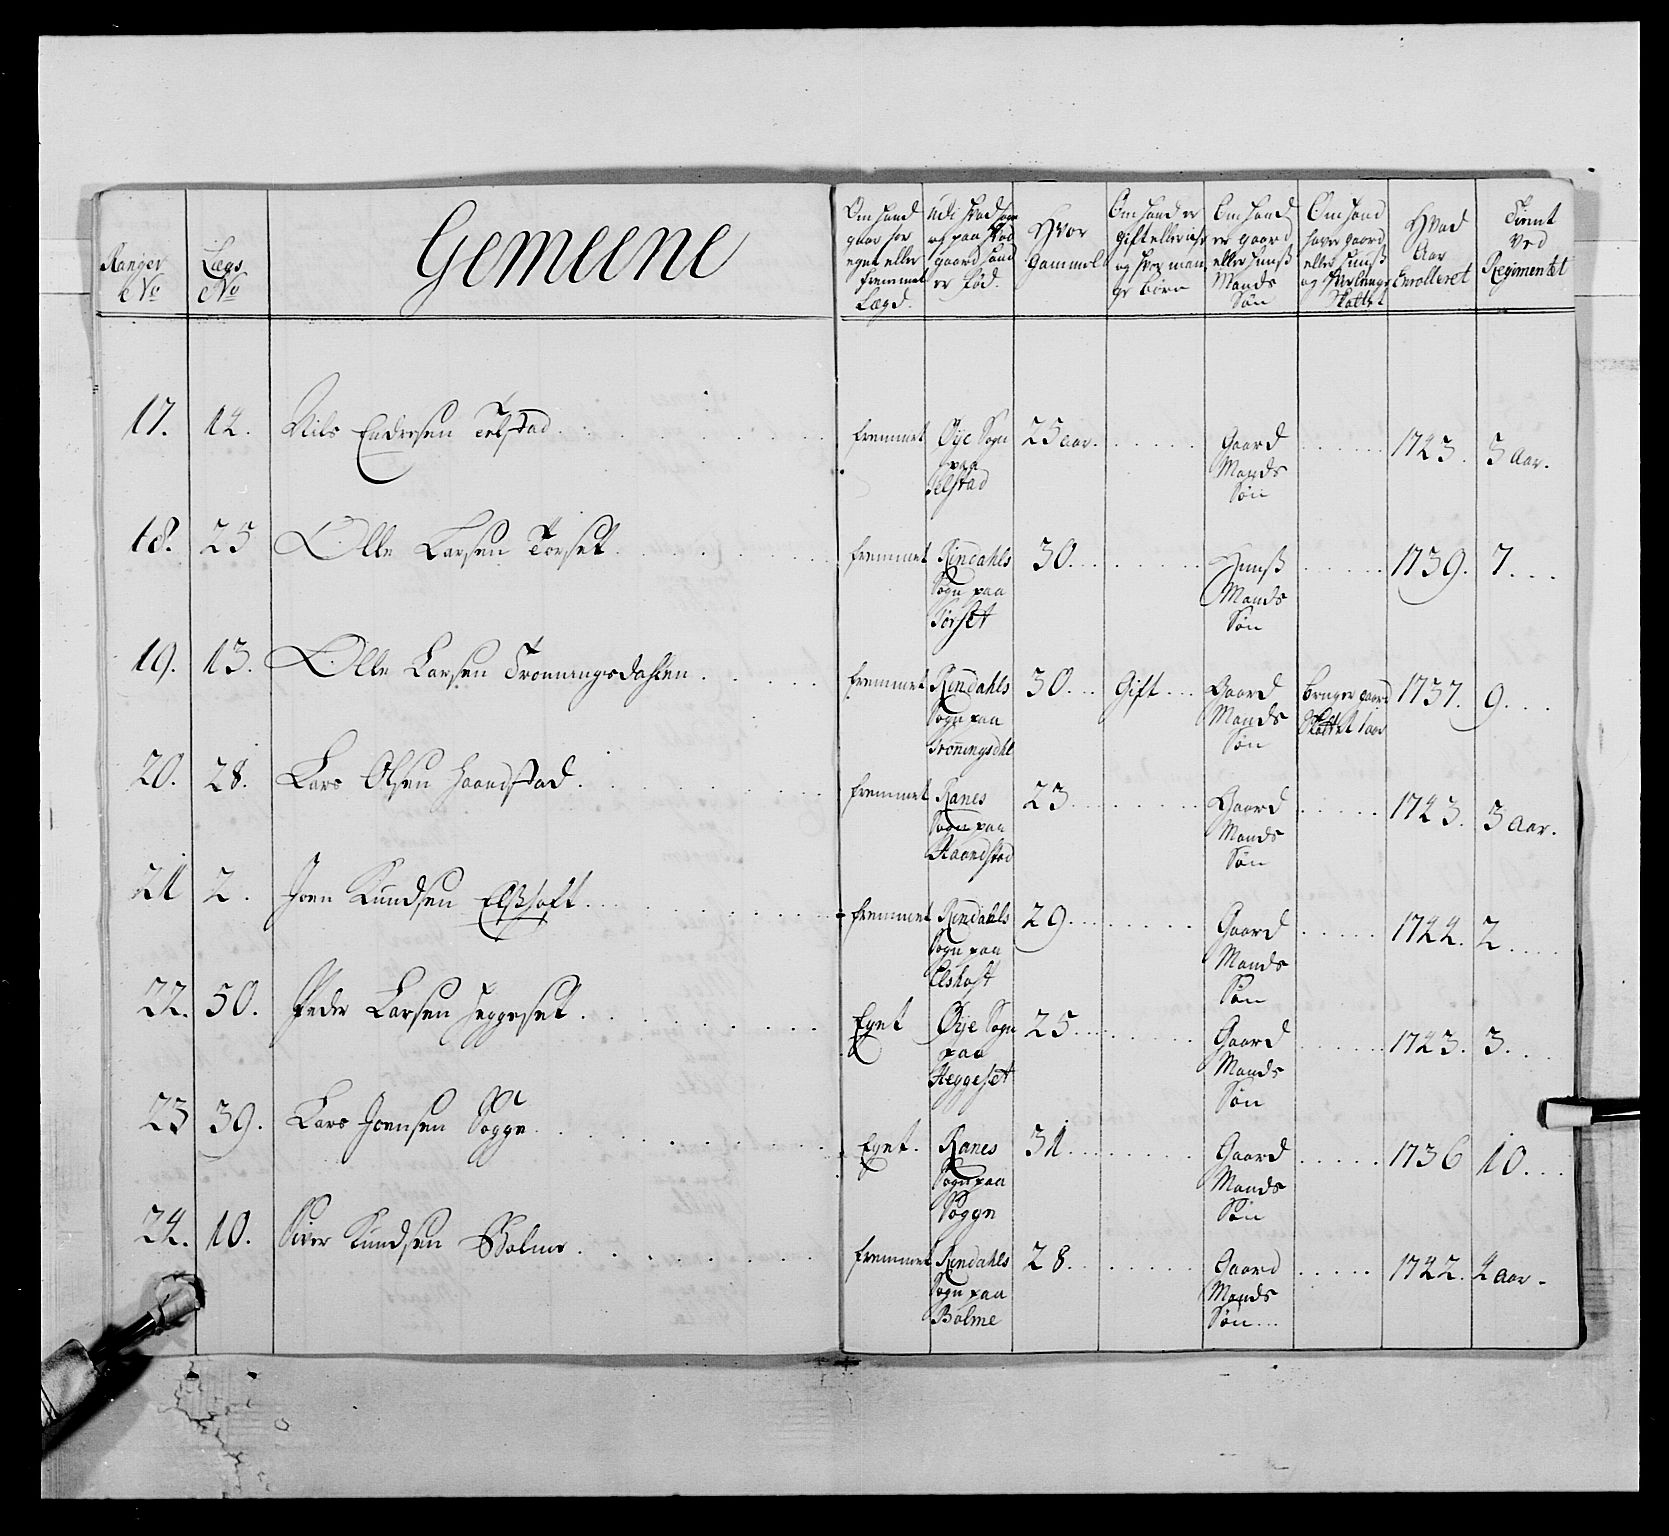 Ranger No
Lægs No
Gemeene
Om hand gaar for eget eller fremmet Lægd.
Udi hvad sogn og paa hvad gaard hand er fød.
Hvor Gammel
Om hand er Gift eller ickе og hvor mange børn
Om hand er gaard eller Huusß Mands Søn
Om hand haver gaard eller Huusß og Skattet
Hvad Aar Enrolleret
Tient Ved Regimentet
17. 14. Nils Endresen Telstad fremmet Øye Sogn paa Telstad 25 aar. Gaard Mands Søn 1743. 3 Aar.
18. 25 Olle Larsen Torset fremmet Rindahls Sogn paa Torset 30. Huusß Mands Søn 1739. 7.
19. 13. Olle Larsen Tronningsdahlen fremmet Rindahls Sogn paa Tronningsdhl 30. Gift Gaard Mands Søn bruger gaard Skattet 1 aar 1737. 9.
20. 28. Lars Olsen Haandstad fremmet Ranes Sogn paa Haandstad 23 Gaard Mands Søn 1743. 3 Aar.
21 2. Joen Knudsen Elßhoft fremmet Rindahls Sogn paa Elshoft 29 Gaard Mands Søn 1744. 2
22. 50. Peder Larsen Heggeset Eget Øye Sogn paa Heggeset 25 Gaard Mands Søn 1743. 3.
23 39. Lars Joensen Sogge Eget. Ranes Sogn paa Sogge 31 Gaard Mands Søn 1736 10.
24. 10. Siver Knudsen Bolme fremmet Rindahls Sogn paa Bolme 28. Gaard Mands Søn 1742. 4 Aar.